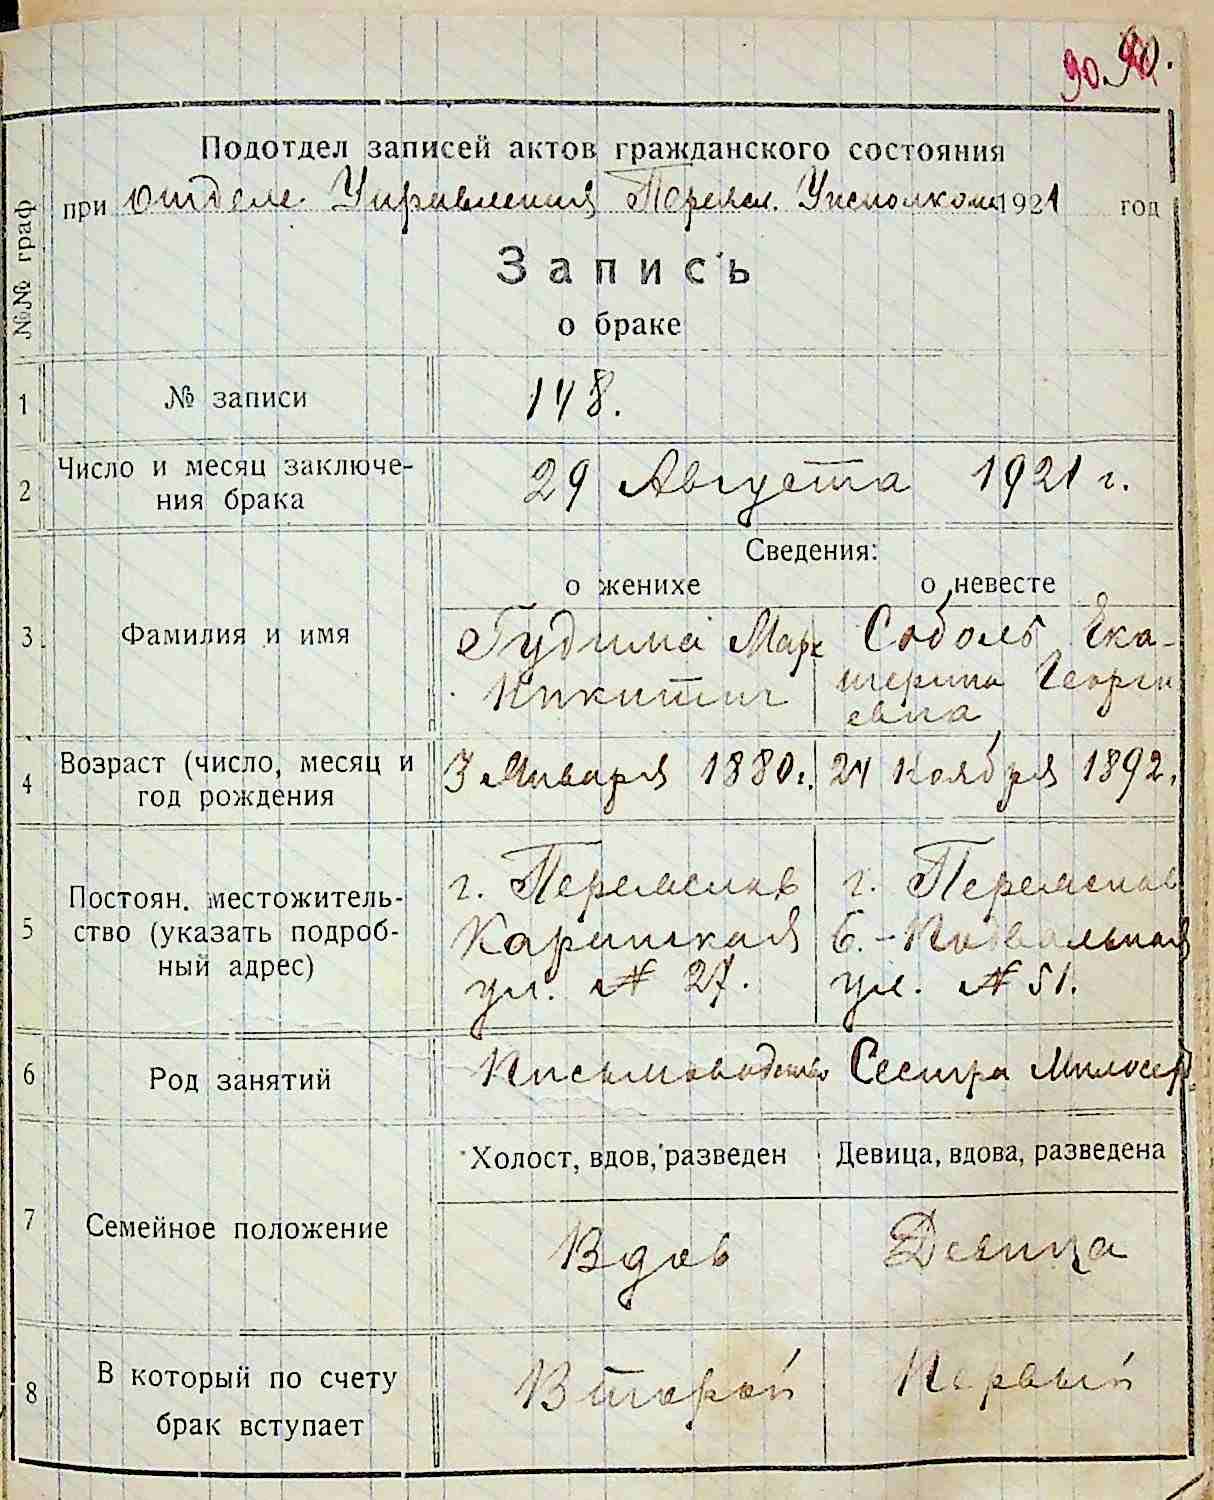 90. 90.
Подотдел записей актов гражданского состояния
при отделе Управления Переясл. Уисполкома 1921 год
№№ граф
Запись
о браке
1 № записи 148.
2 Число и месяц заключе-
ния брака 29 Августа 1921 г.
Сведения:
о женихе о невесте
3 Фамилия и имя Гудима Марк Соболь Ека-
Никитич терина Георги
евна
4 Возраст (число, месяц и
год рождения 3 Января 1880 г. 24 Ноября 1892.
5 Постоян. местожитель-
ство (указать подроб-
ный адрес)
г. Переяслав г. Переяслав
ул. № 27. Б.-Подвальная
ул. № 51.
6 Род занятий Письмоводство Сестра Милосерд.
Холост, вдов, разведен Девица, вдова, разведена
7 Семейное положение Вдов Девица
8 В который по счету
брак вступает Второй Первый